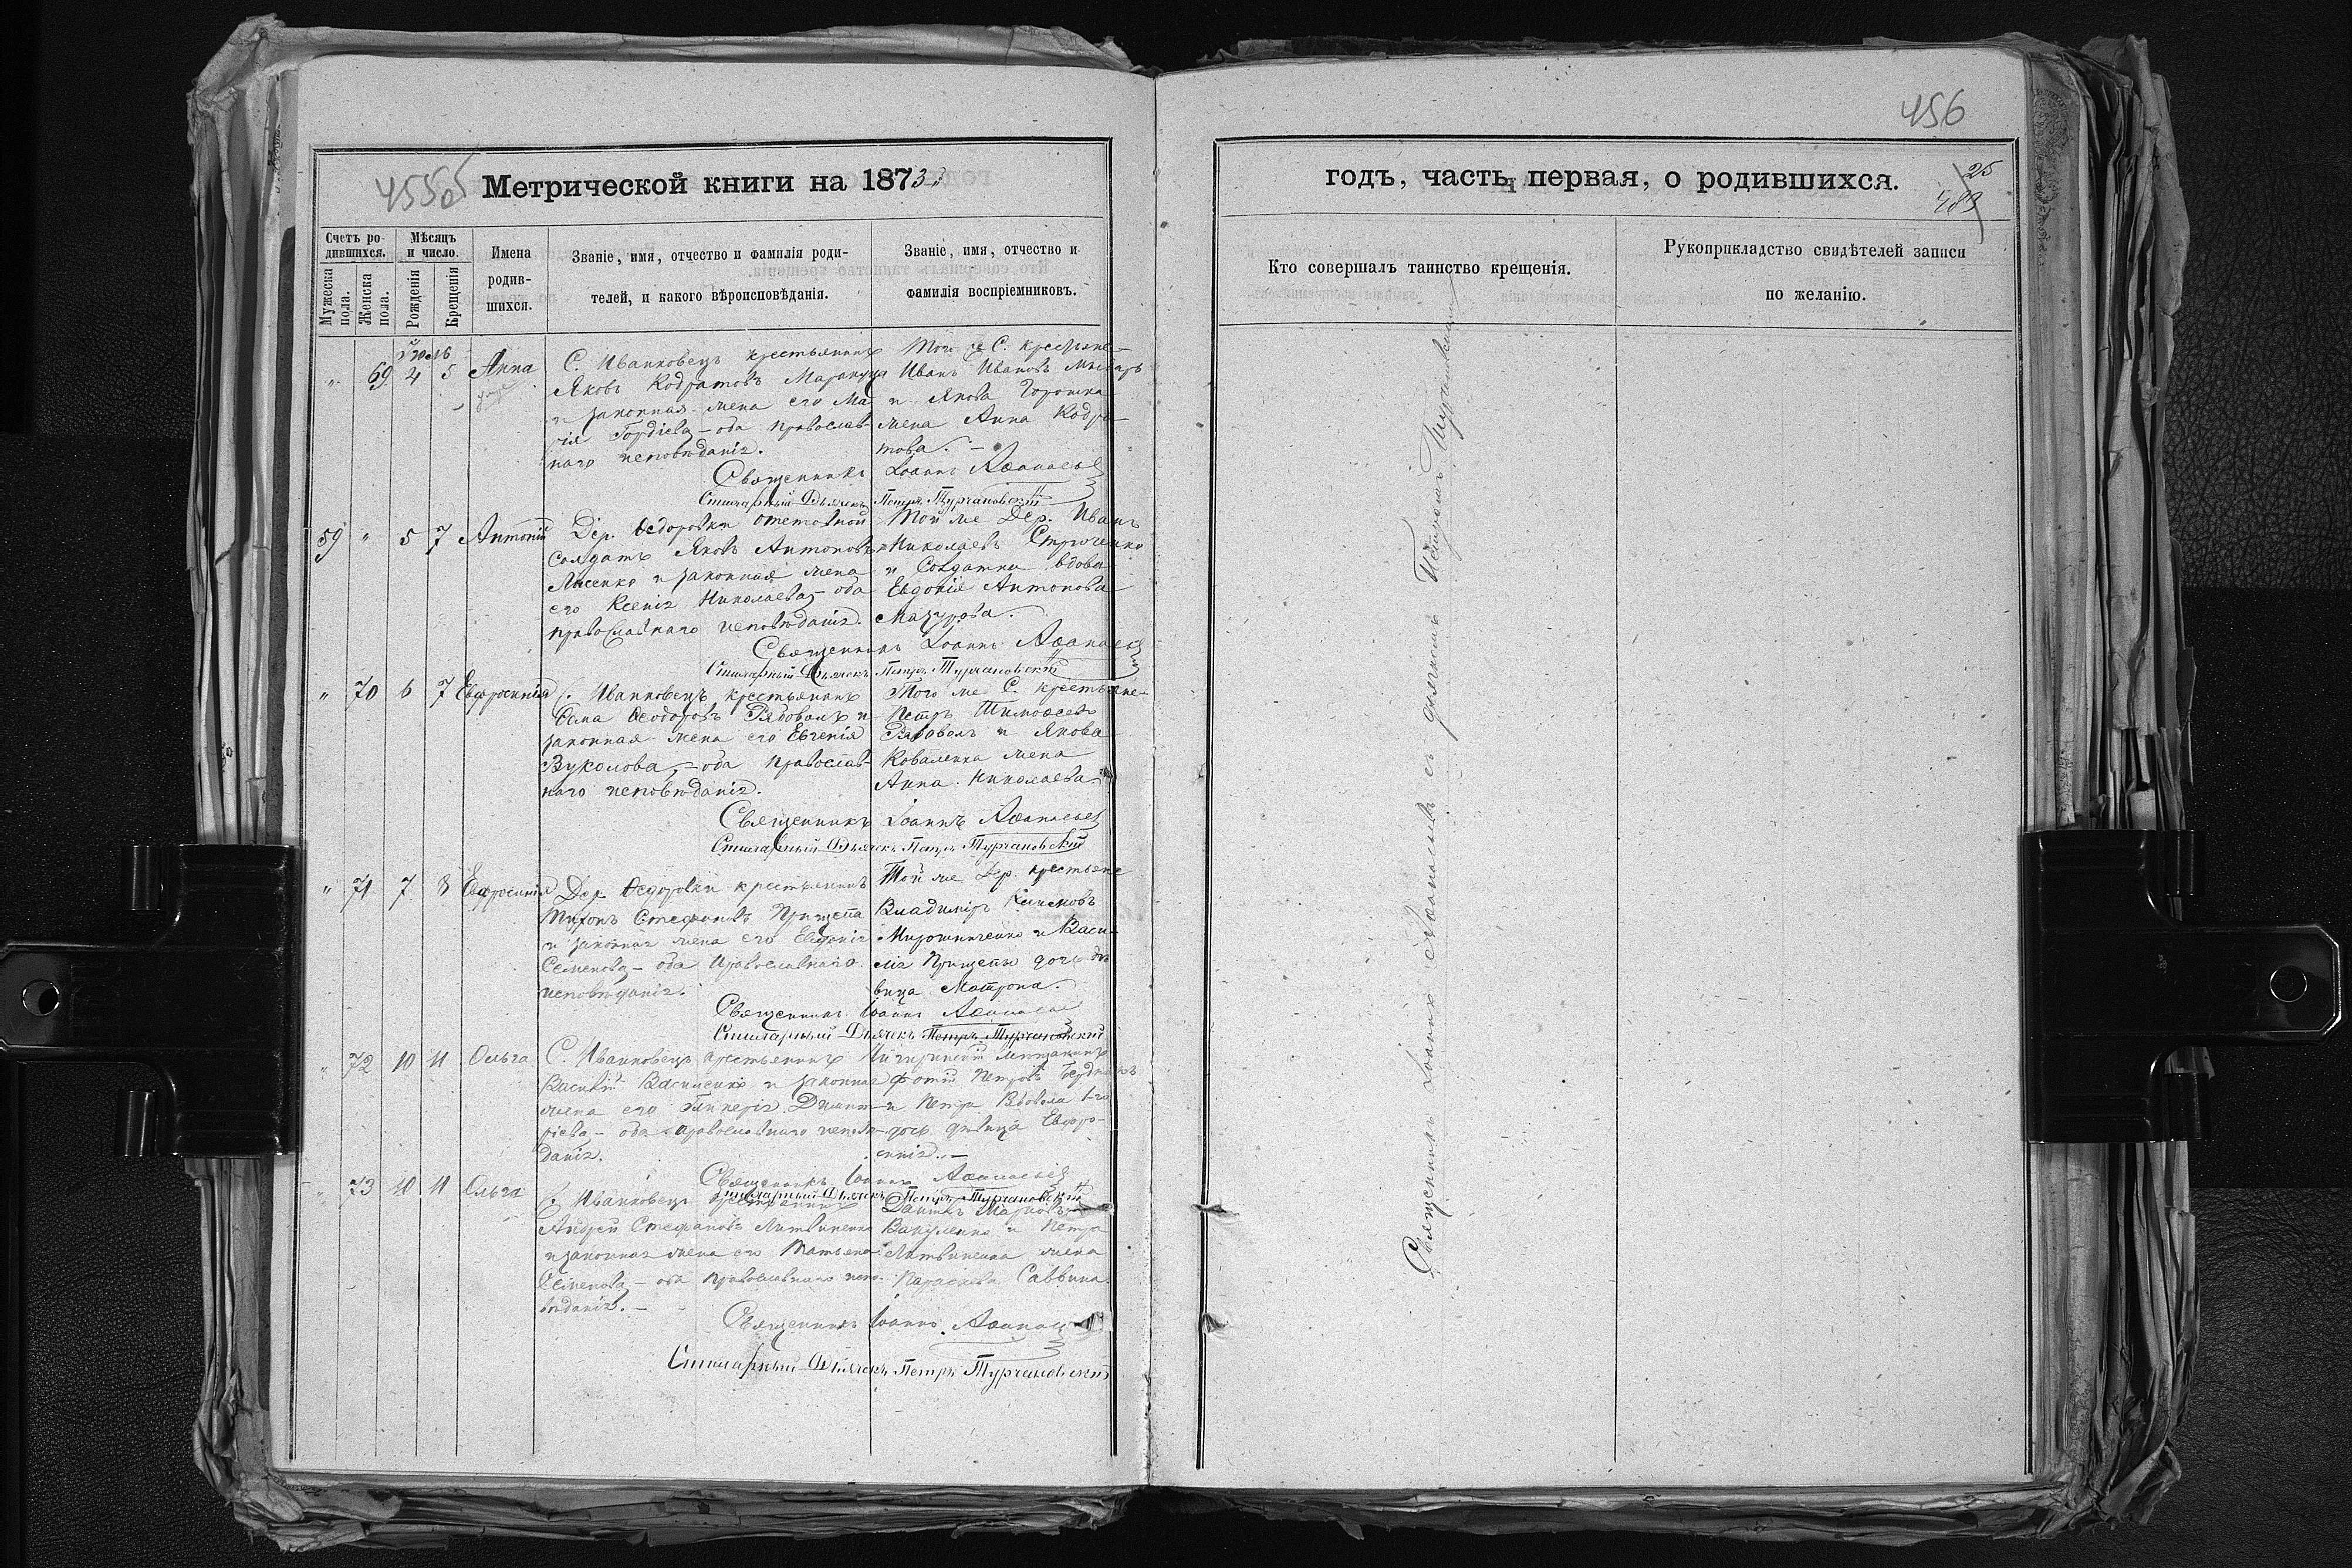 456
455об
Метрической книги на 1873
годъ, часть первая, о родившихся.
25
483
Счетъ ро-
дившихся.
Мѣсяцъ
и число.
Мужеска
пола.
Женска
пола.
Рожденія
Крещенія
Имена
родив-
шихся.
Званіе, имя, отчество и фамилія роди-
телей, и какого вѣроисповѣданія.
Званіе, имя, отчество и
фамилія воспріемниковъ.
Кто совершалъ таинство крещенія.
Рукоприкладство свидѣтелей записи
по желанію.
" 69 4 5 Анна
С. Иванковецъ крестьянинъ
Яковъ Кодратовъ
и законная жена его Ма-
рія Гордіева - оба православ-
наго исповѣданія.
Того же С. крестьяне-
Иванъ Ивановъ
и Якова
жена Анна Кодра-
това. -
Священникъ Іоаннъ Аѳанасьев
Стихарный Дьячекъ Петръ Турчановскій
59 " 5 7 Антоній
Дер. Ѳедоровки отставной
солдатъ Яковъ Антоновъ
Лисенко и законная жена
его Ксенія Николаева - оба
православнаго исповѣданія.
Той же Дер. Иванъ
Николаевъ
и Солдатка вдова
Евдокія Антонова
Мазурова.
Священникъ Іоаннъ Аѳанасьев
Стихарный Дьячекъ Петръ Турчановскій
" 70 6 7 Евфросинія
С. Иванковецъ крестьянинъ
Ѳома Ѳеодоровъ Рябоволъ и
законная жена его Евгенія
Вуколова, - оба православ-
наго исповѣданія.
Того же С. крестьяне-
Петръ Тимоѳеевъ
Рябоволъ и Якова
Коваленка жена
Анна Николаева
Священникъ Іоаннъ Аѳанасьев
Стихарный Дьячекъ Петръ Турчановскій
" 71 7 8 Евфросинія
Дер. Ѳедоровки крестьянинъ
Тихонъ Стефановъ Прищепа
и законная жена его
Семенова - оба православнаго
исповѣданія.
Той же Дер. крестьяне
Владиміръ
Мирошниченко и Васи-
лія Прищепы дочь дѣ-
вица Матрона.
Священникъ Іоаннъ Аѳанасьев
Стихарный Дьячекъ Петръ Турчановскій
" 72 10 11 Ольга
С. Иванковецъ крестьянинъ
Василій Василенко и законная
жена его Гликерія Димит-
ріева - оба православнаго исповѣ-
данія.
Чигиринскій мѣщанинъ
Фотій Петровъ
и Петра
дочь дѣвица Евфро-
синія. -
Священникъ Іоаннъ Аѳанасьев
Стихарный Дьячекъ Петръ Турчановскій
" 73 10 11 Ольга
С. Иванковецъ крестьянинъ
Андрей Стефановъ Литвиненко
и законная жена его Татьяна
Семенова - оба православнаго испо-
вѣданія. -
Даніилъ Марковъ
Вакуленко и Петра
Литвиненка жена
Параскева Саввина.
Священникъ Іоаннъ Аѳанасьев
Стихарный Дьячекъ Петръ Турчановскій
Священникъ Іоаннъ Аѳанасьевъ съ дьячкомъ Петромъ Турчановскимъ